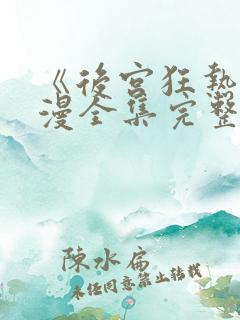 《後宮狂熱
漫全集完整
陳水扁
未經同意禁止轉載